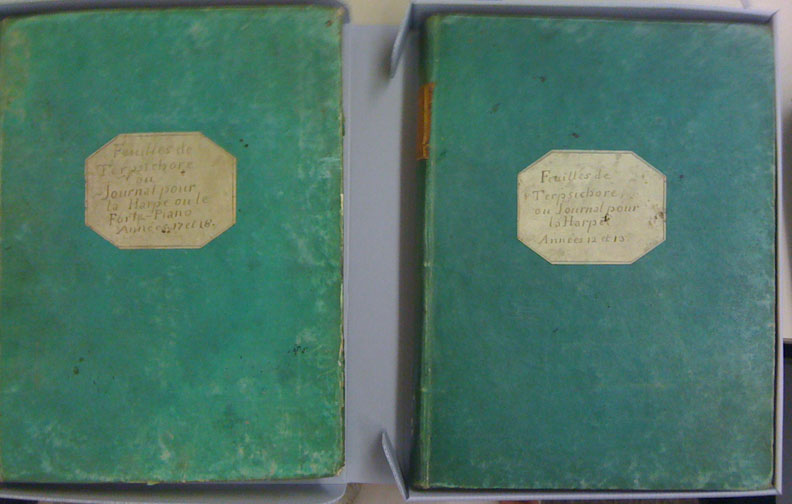 Feuilles de
Terpsichore
ou
Journal pour
la Harpe ou le
Forte-Piano
Années 17 et 18.
Feuilles de
Terpsichore,
ou Journal pour
la Harpe
Années 12 et 13